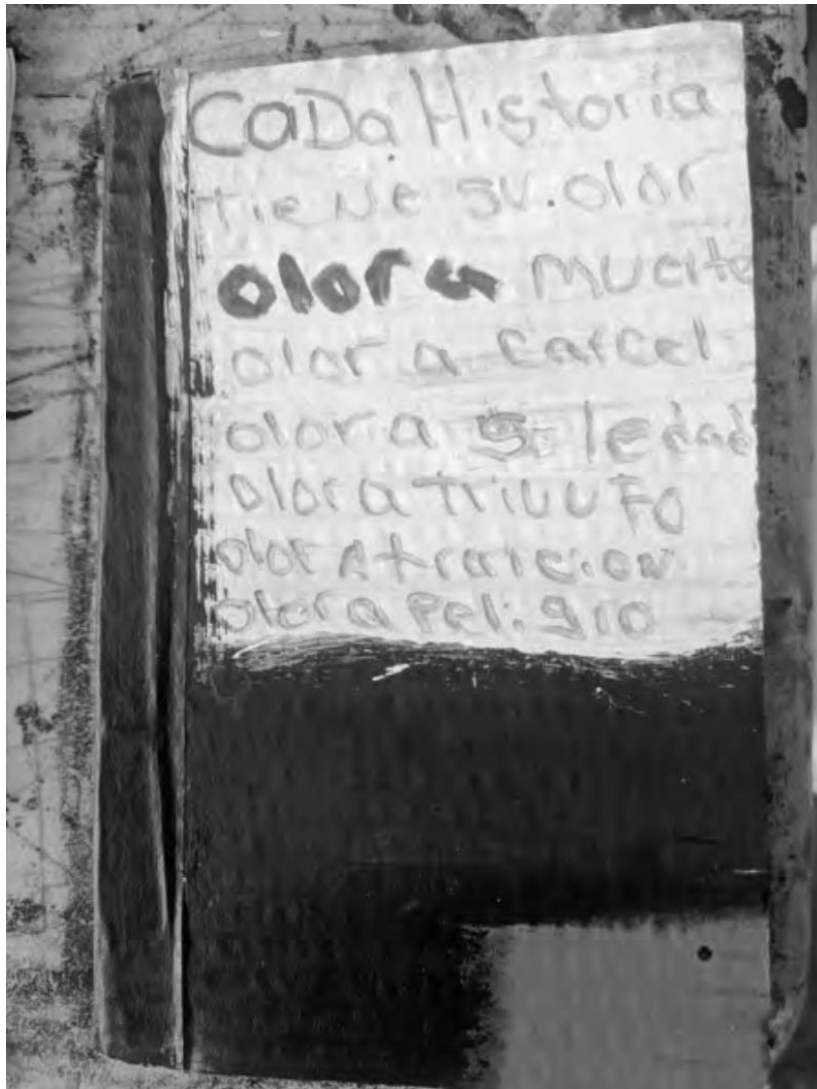 CaDa Historia
tieNe su.olor
olor a muerte
olor a carcel
olor a Soledad
olor a triuuFo
olor A traicion
olor a Peligro